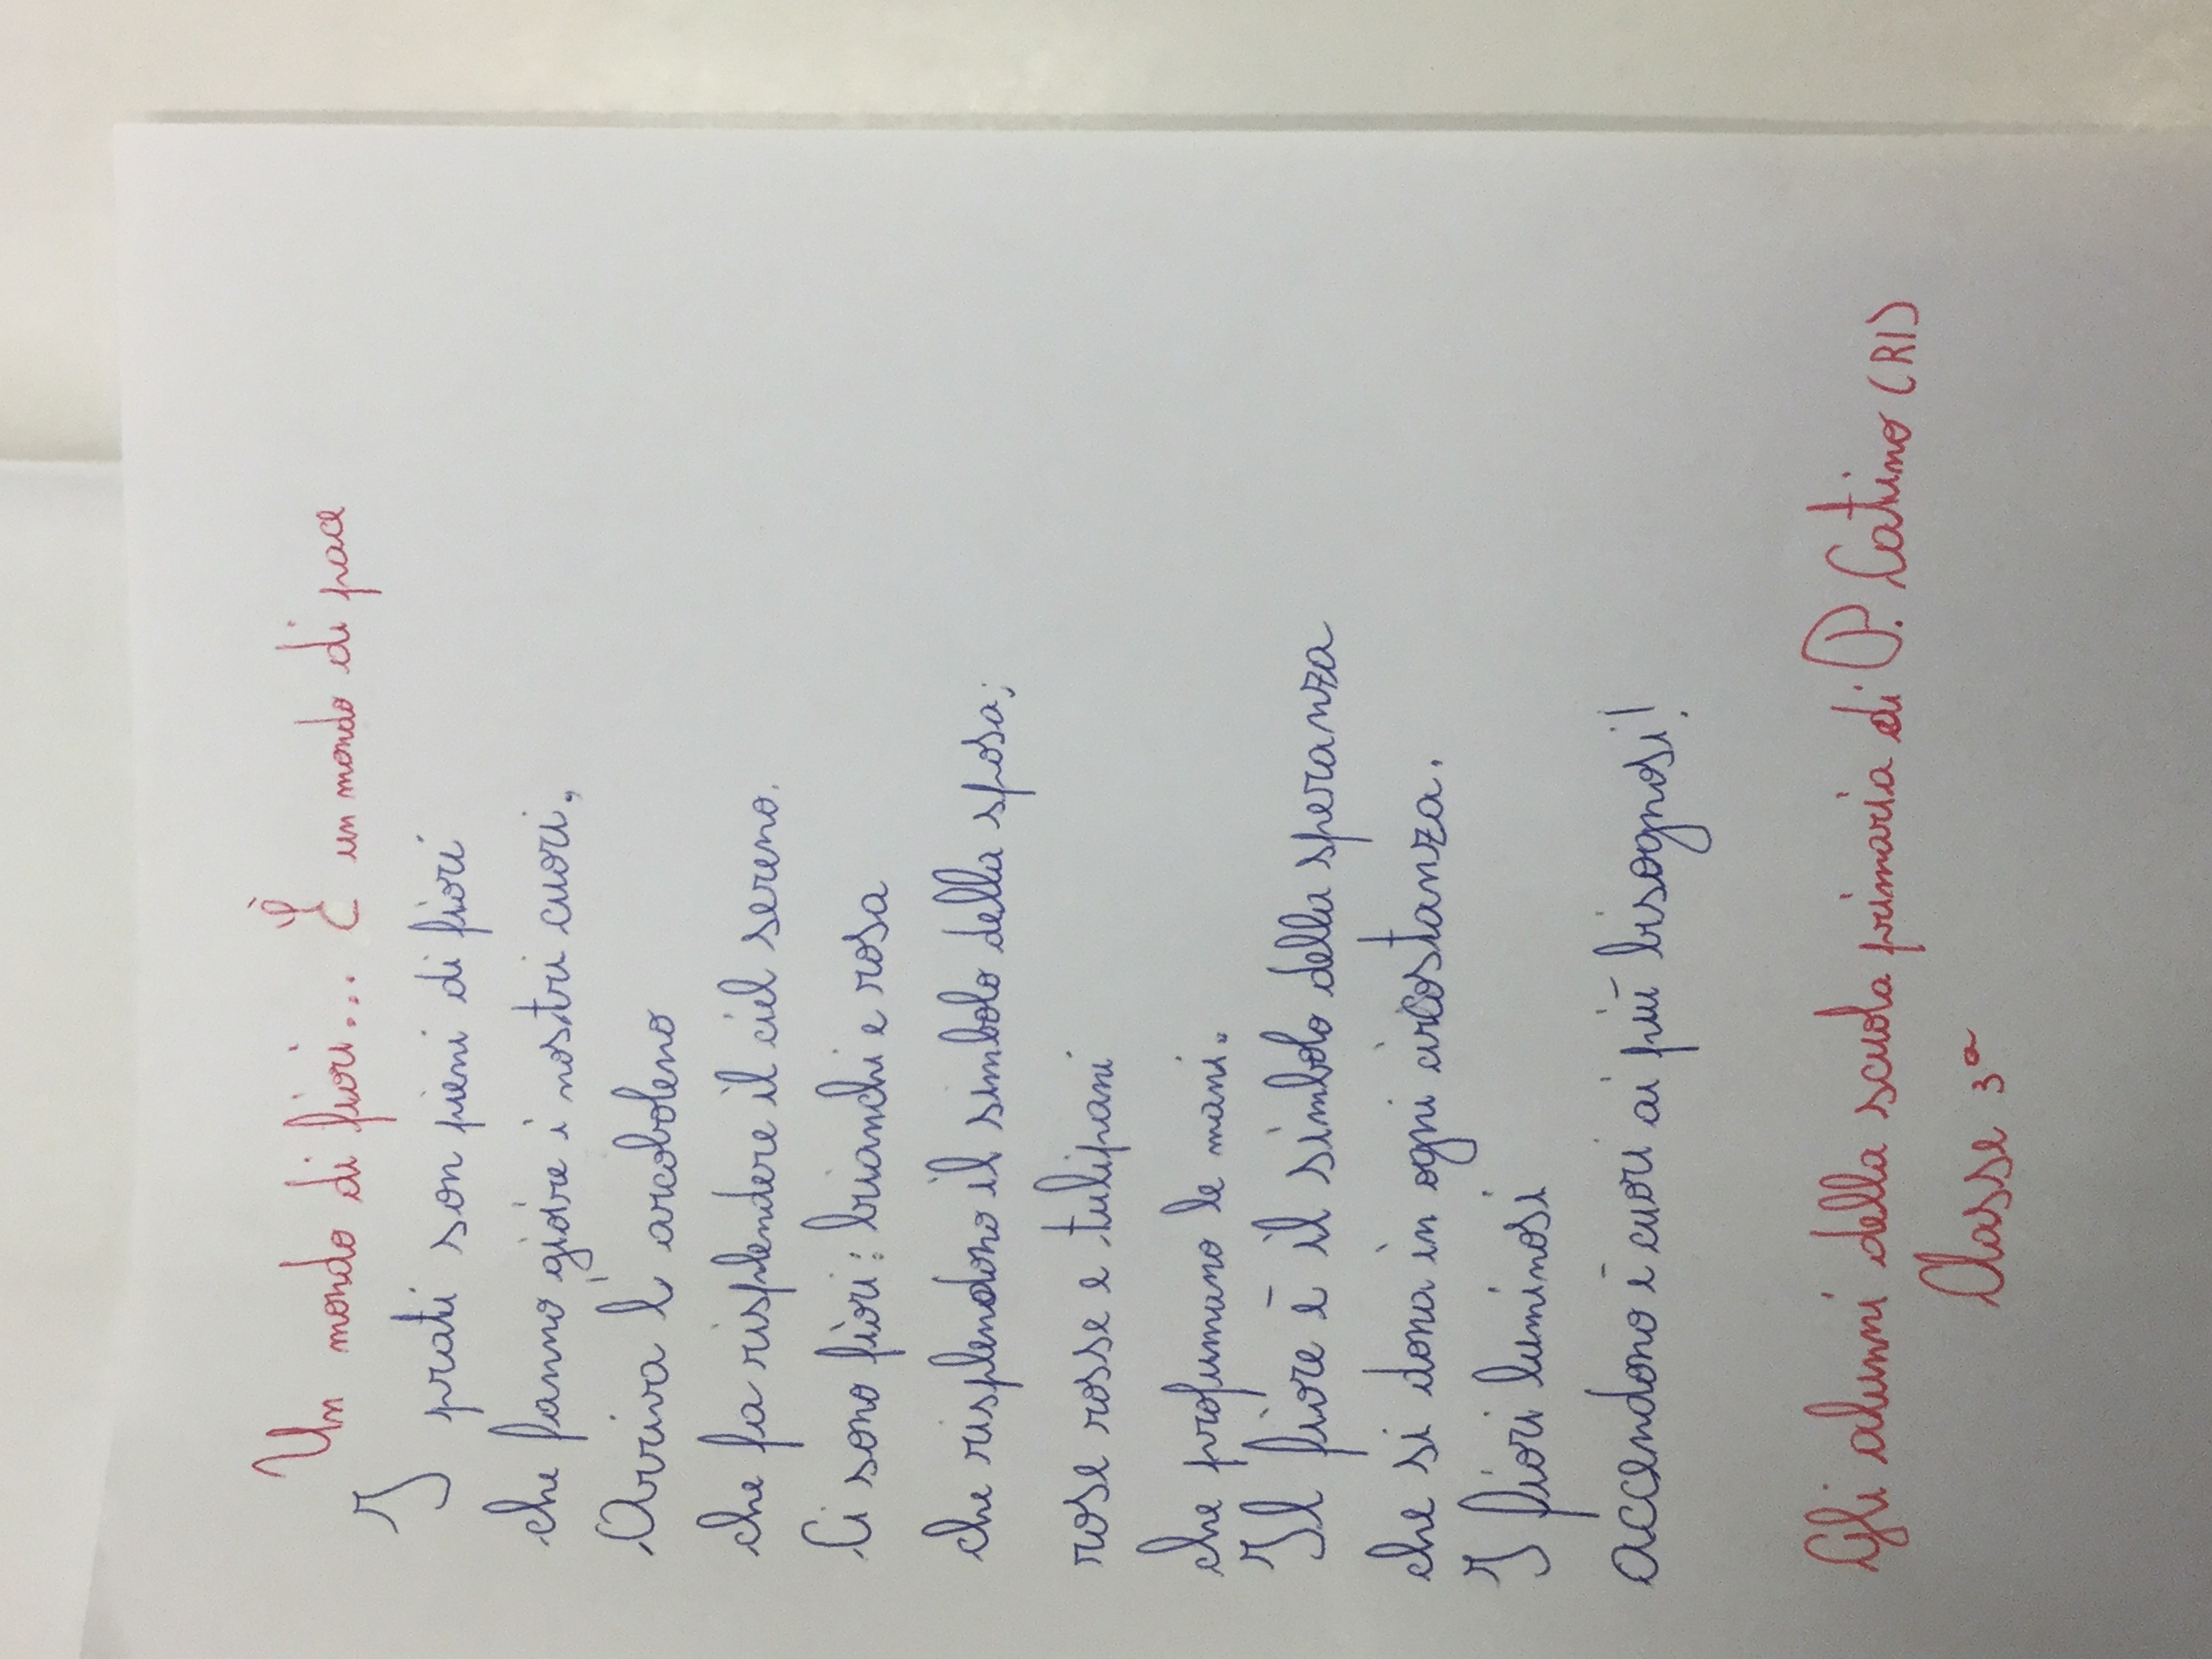 Un mondo di fiori... È un mondo di pace
I prati son pieni di fiori
che fanno gioire i nostri cuori,
Arriva l'arcoboleno
che fa risplendere il ciel sereno.
Ci sono fiori: bianchi e rosa
che risplendono il simbolo della sposa;
rose rosse e tulipani
che profumano le mani.
Il fiore è il simbolo della speranza
che si dona in ogni circostanza.
I fiori luminosi
accendono i cuori ai più bisognosi!
Gli alunni della scuola primaria di P. Catino (RI)
Classe 3ª